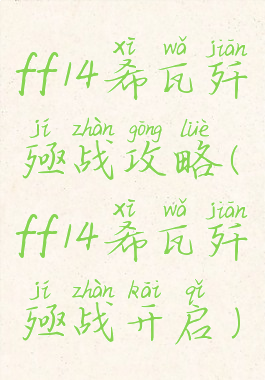 xī wǎ jiān
ff14希瓦歼
jí zhàn gōng lüè
殛战攻略(
xī wǎ jiān
ff14希瓦歼
jí zhàn kāi qǐ
殛战开启)